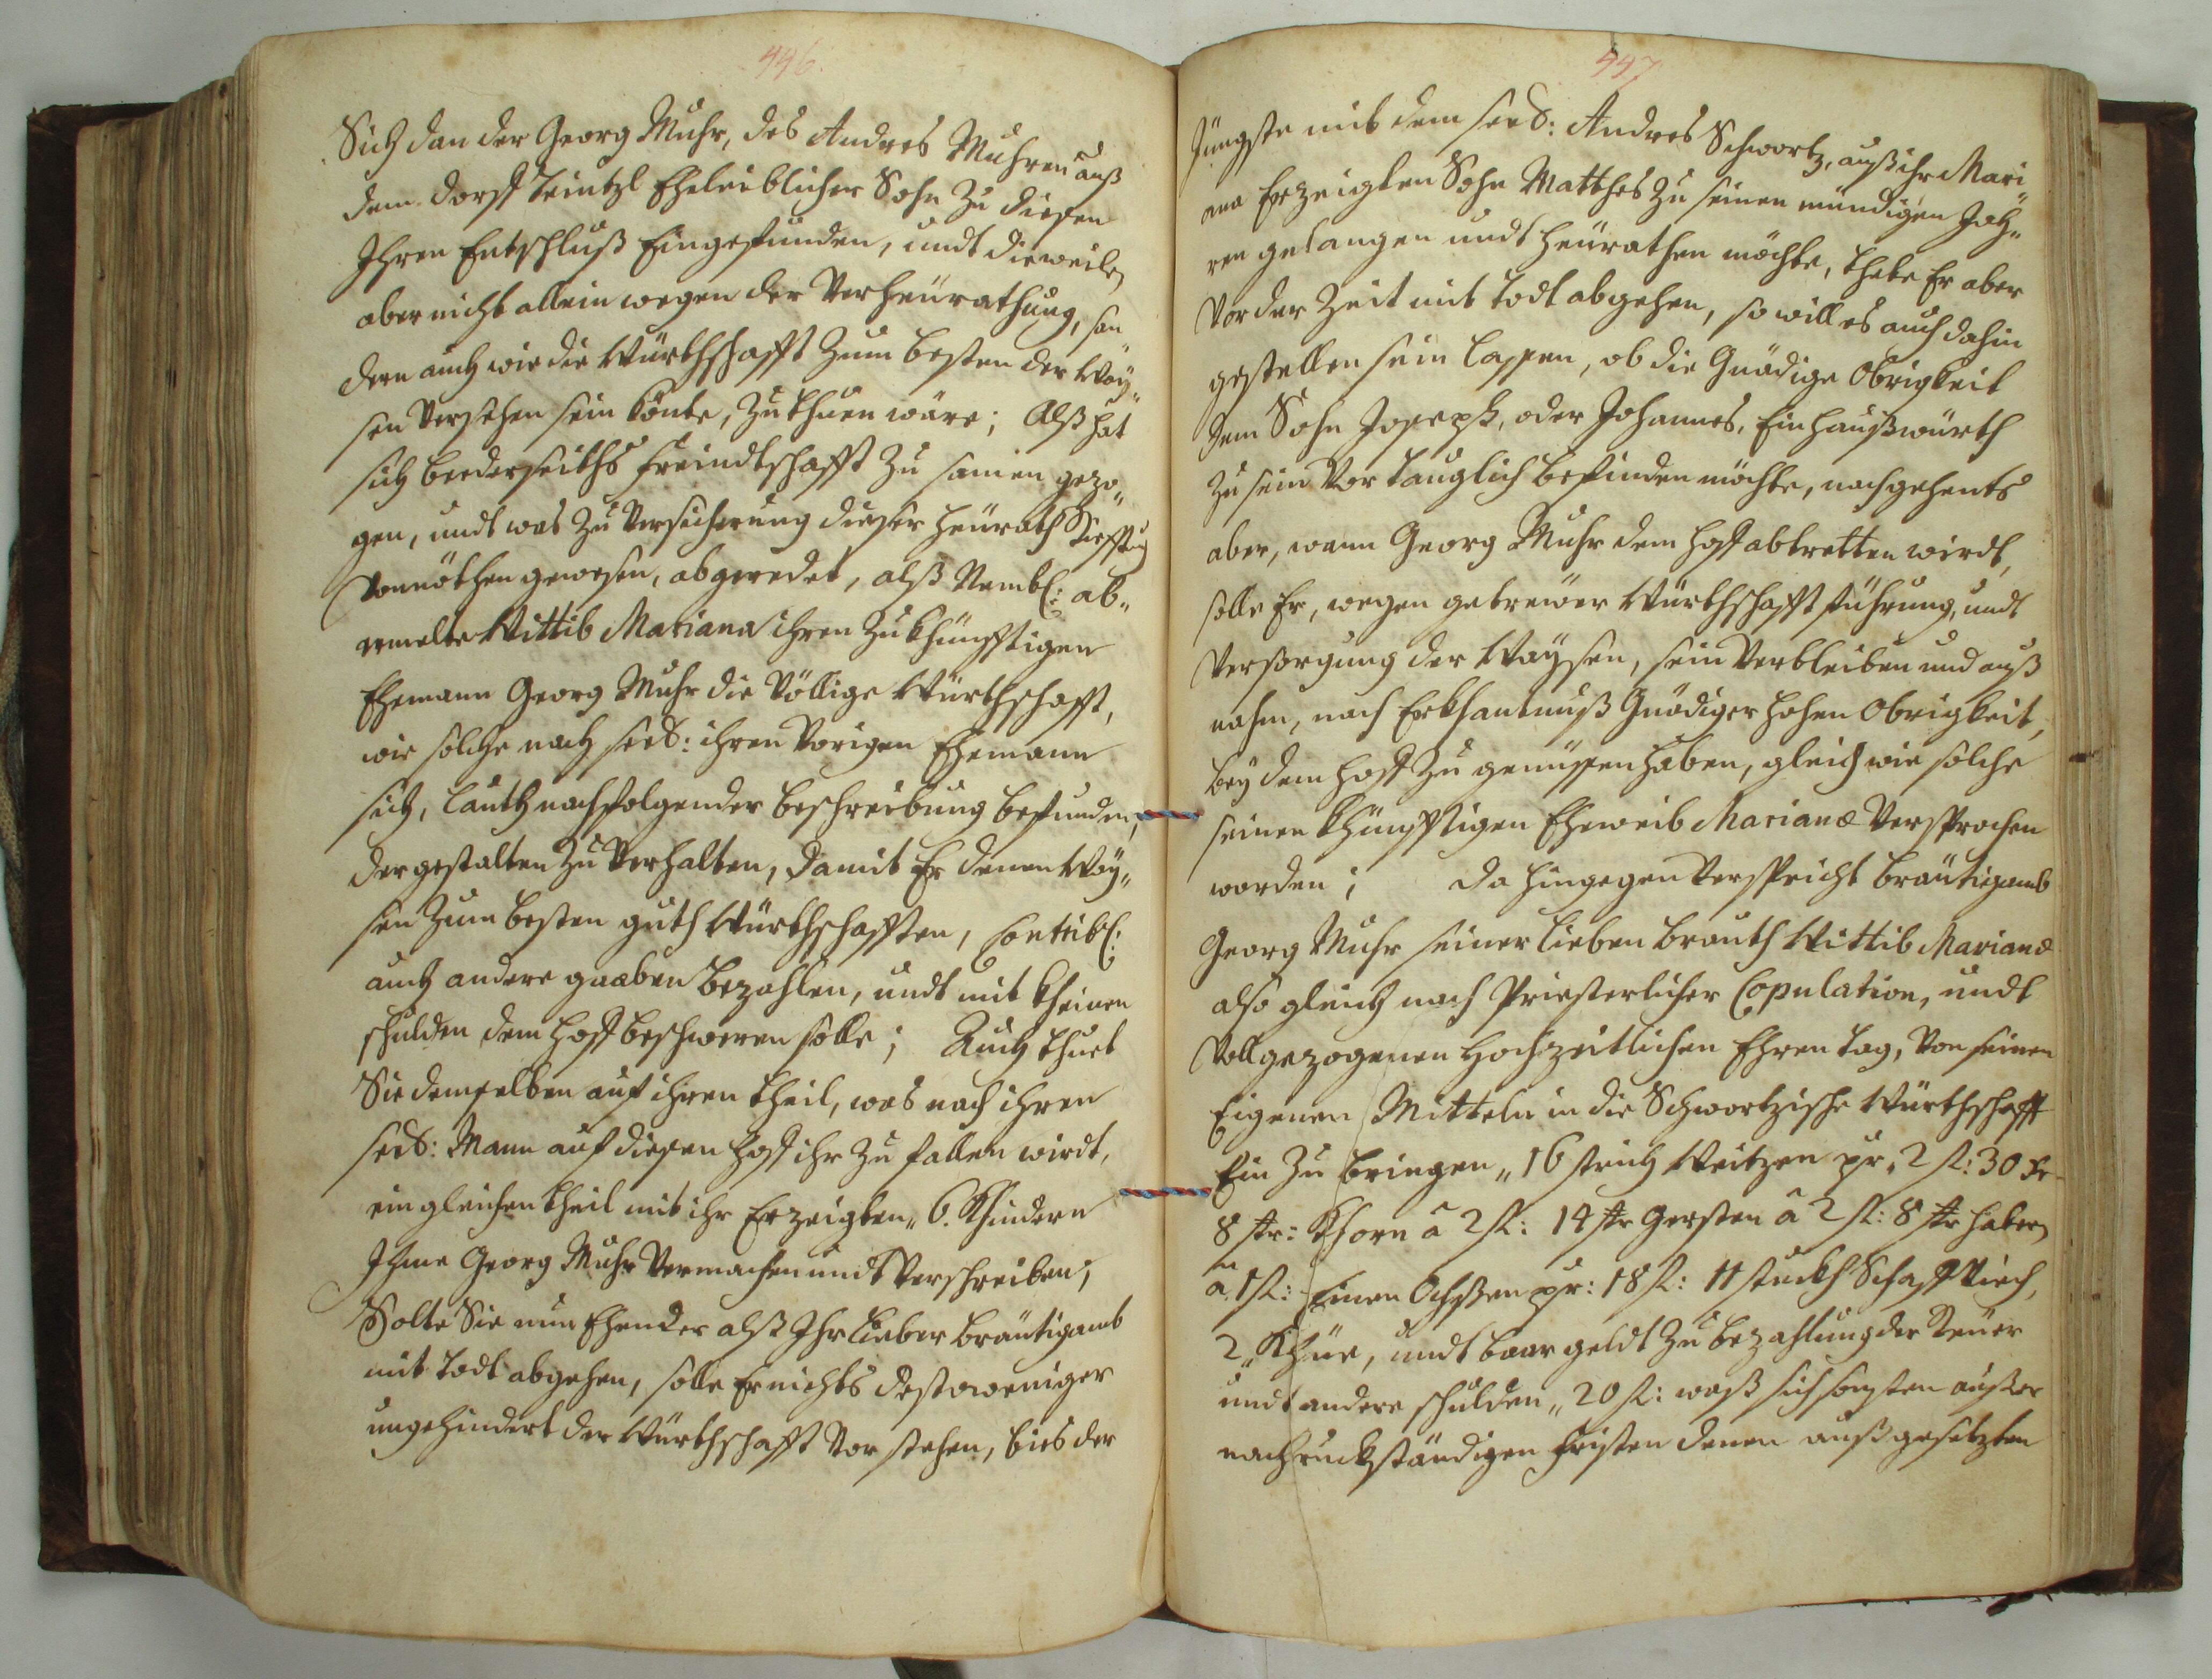 446
Sich dan der Georg Muhr, des Andres Muhren auß
dem dorff Teintzl Eheleiblicher Sohn zu diesen
Ihren Entschluß Eingefunden, undt dieweilen
aber nicht allein wegen der Verheürathung, son„
dern auch wie die Würthschafft zum besten der Waÿ„
sen Versehen sein könte, zu thuen wäre; Alß hat
sich beederseiths freindtschafft zu samen gezo„
gen, undt was zu Versicherung dieser heürath
Vonnöthen gewesen, abgeredet, alß Nembl: ab„
ermelte Wittib Mariana ihren zukhünfftigen
Ehemann Georg Muhr die Völlige Würthschafft,
wie solche nach seel: ihren Vorigen Ehemann
sich, lauth nachfolgender beschreibung befunden,
der gestalten zu Verhalten, damit Er denen Waÿ„
sen zum besten guth Würthschafften, Contribl:
auch andere gaaben bezahlen, undt mit kheinen
schulden dem hoff beschweren solle; Auch thuet
Sie demselben auf ihren theil, was nach ihren
seel: Mann auf diesen hoff ihr zu fallen wirdt,
ein gleichen theil mit ihr Erzeigten „6. Khindern
Ihme Georg Muhr Vermachen undt Verschreiben;
Solte Sie nun Ehender alß Ihr lieber bräutigamb
mit todt abgehen, solle Er nichts destoweniger
ungehindert der Würthschafft Vor stehen, bies der
447
Jüngste mit dem seel: Andres Schwartz, auß ihr Mari„
ana Erzeigten Sohn Matthes zu seinen mündigen Jah„
ren gelangen undt heürathen möchte, thete Er aber
Vor der Zeit mit todt abgehen, so will es auch dahin
gestellen sein lassen, ob die Gnädige Obrigkeit
dem Sohn Joseph, oder Johannes, Ein haußwürth
zu sein Vor tauglich befinden möchte, nachgehents
aber, wann Georg Muhr dem hoff abtretten wirdt,
solle Er, wegen getrewer Würthschafft führung, undt
Versorgung der Waÿsen, sein Verbleiben und auß
nahm, nach Erkhantnuß Gnädiger hohen Obrigkeit,
beÿ dem hoff zu genüssen haben, gleich wie solche
seinen khünfftigen Eheweib Marianæ Versprochen
worden; da hingegen Verspricht bräutigamb
Georg Muhr seiner lieben brauth Wittib Marianæ
also gleich nach Priesterlicher Copulation, undt
Vollgezogenen Hochzeitlichen Ehren tag, Von seinen
Eigenen Mitteln in die Schwartzische Würthschafft
Ein zu bringen „16 strich Weitzen pr. 2 fl: 30 kr
8 str: Khorn â 2 fl: 14 str Gersten â 2 fl: 8 str haber
â 1 fl: Einen Ochßen pr: 18 fl: 11 stuckh Schaff Viech,
2 „Khüe, undt baar geldt zu bezahlung der Steüer
undt andere schulden „20 fl: waß sich sonsten außer
nach ruckständigen fristen denen außgesetzten